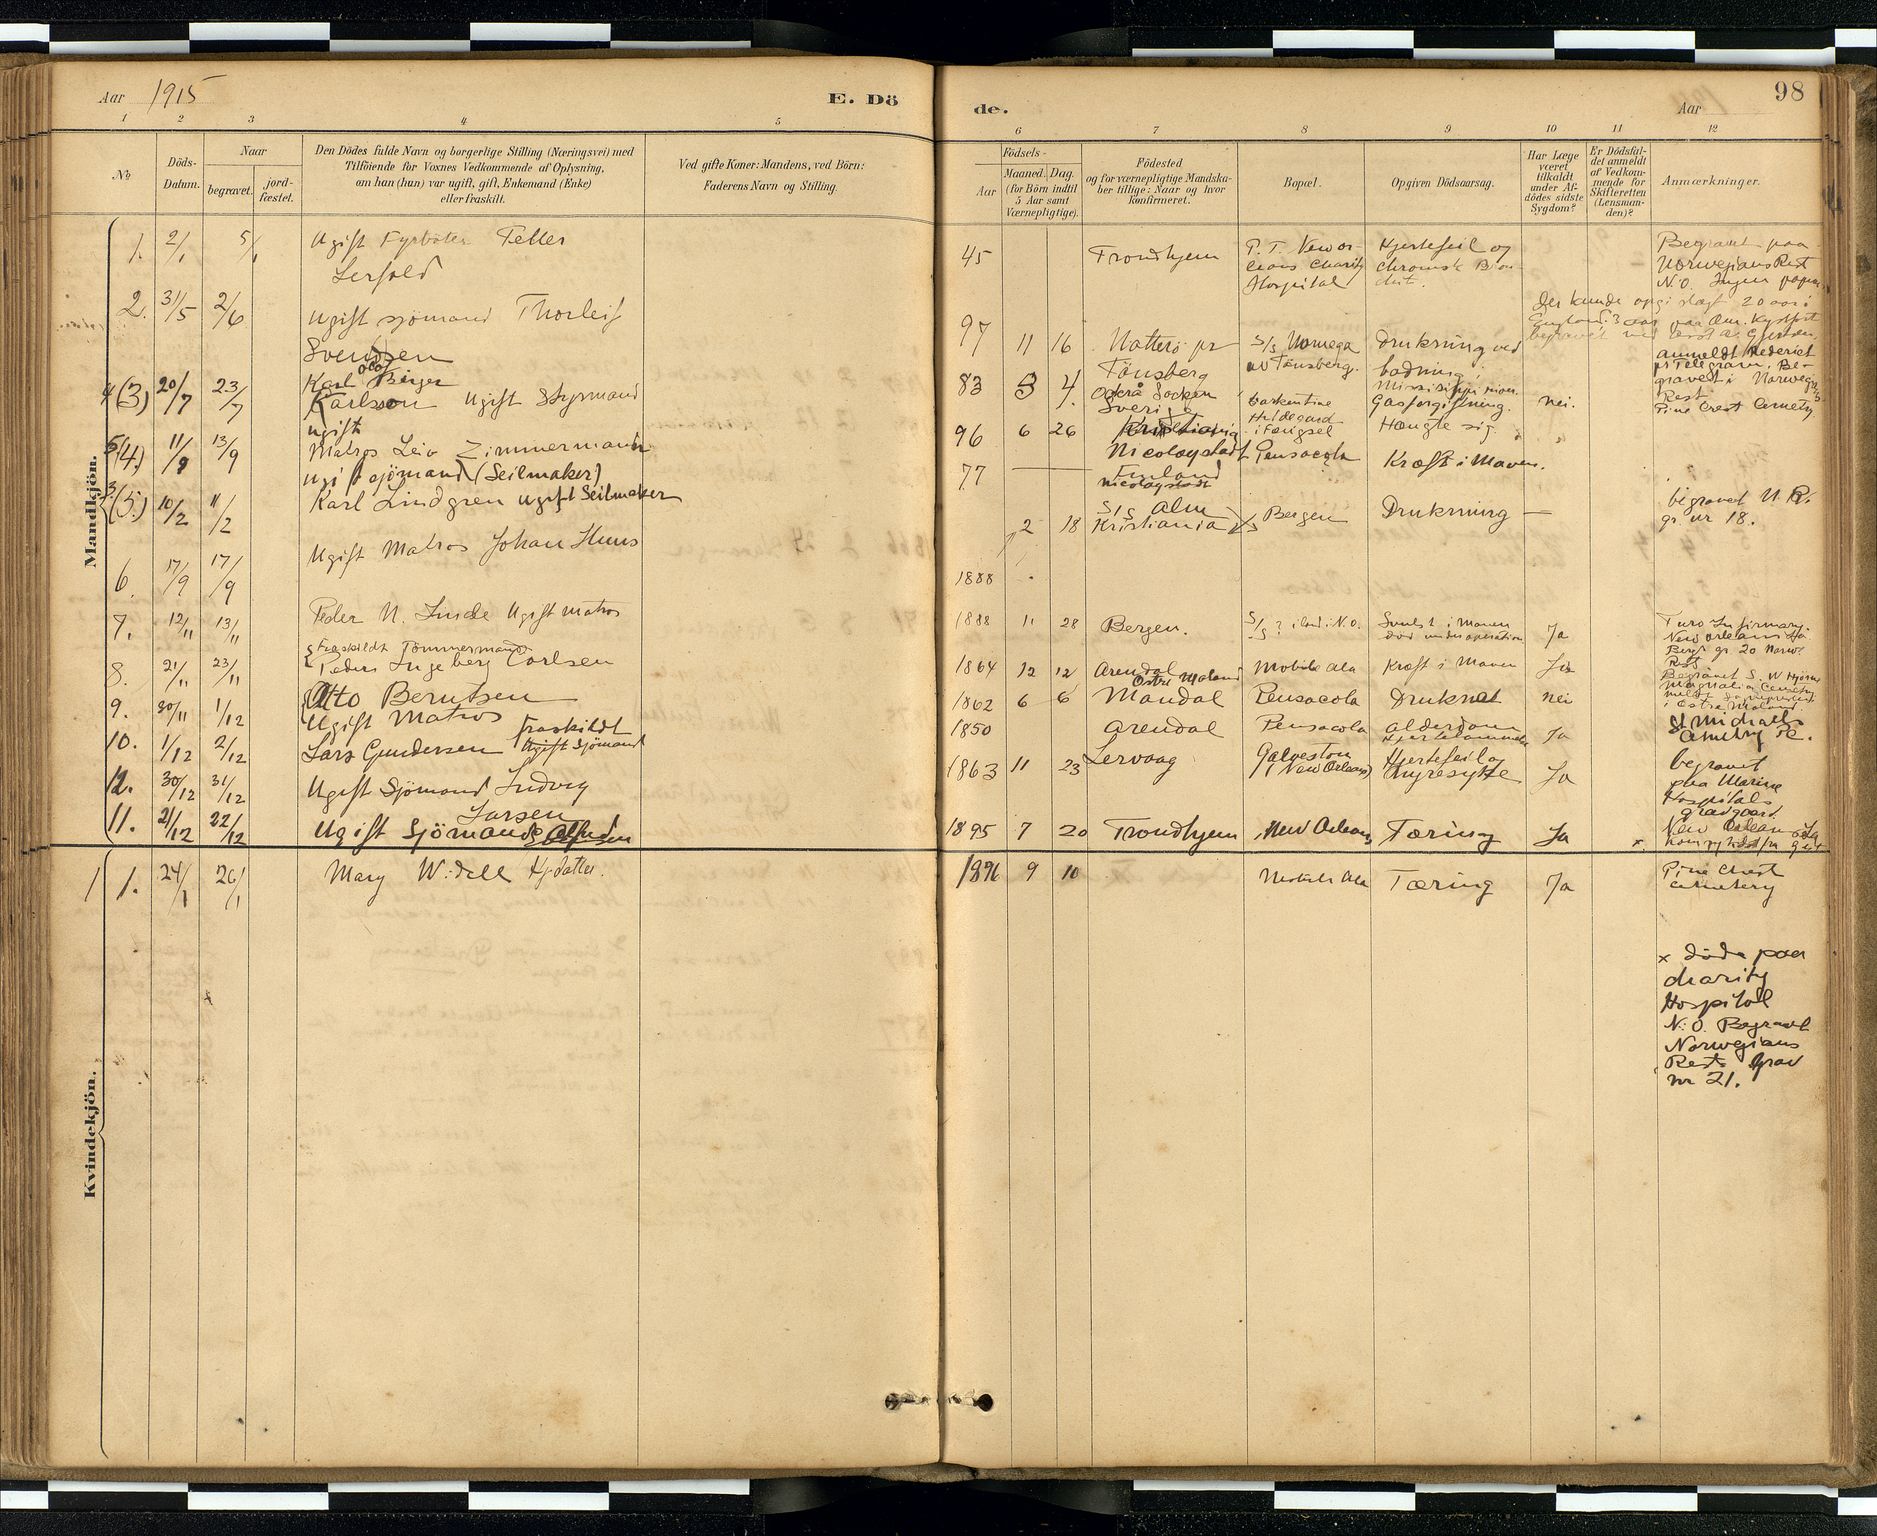 Aar 1915
E. Dö
de.
Aar
98
1 2 3 4 5 6 7 8 9 10 11 12
No
Döds-
Datum.
Naar
begravet.
jord-
fæstet.
Den Dödes fulde Navn og borgerlige Stilling (Næringsvei) med
Tilföiende for Voxnes Vedkommende af Oplysning,
om han (hun) var ugift, gift, Enkemand (Enke)
eller fraskilt.
Ved gifte Koner: Mandens, ved Börn:
Faderens Navn og Stilling.
Födsels-
Aar
Maaned.
Dag.
(for Börn indtil
5 Aar samt
Værnepligtige).
Födested
og for værnepligtige Mandska-
ber tillige: Naar og hvor
konfirmeret.
Bopæl.
Opgiven Dödsaarsag.
Har Læge
været
tilkaldt
under Af-
dödes sidste
Sygdom?
Er Dödsfal-
det anmeldt
af Vedkom-
mende for
Skifteretten
(Lensman-
den)?
Anmærkninger.
Mandkjön.
1. 2/1 5/1 Ugift Fyrböter Teller
Lerfald
45 Trondhjem
P.T. New or-
leans Charity
Hospital
Hjertefeil og
chronisk Bron
chit.
Begravet paa
Norwegians Rest
N.O. Ingen papir
2. 31/5 2/6 Ugift sjömand Thorleif
Svendsen
97 11 16 Nötterö pr
Tönsberg
S/S Norwega
av Tönsberg.
Drukning ved
badning
Der kunde opgi slægt 20 aar i
England. 3 aar paa Am. Kysten
begravet ved
anmeldt Rederiet
pr Telegram. Be-
gravet i Norwegians
Rest
4 (3) 20/7 23/7 Karl Olof Birger
Karlsson Ugift Styrmand
83 3 4. Ockrå Socken
Sverige
barkentine
Hildegard
Mississippi
Gasforgiftning.
nei.
Pine Crest Cemetry
5 (4.) 11/9 13/9 ugift
Matros Leio Zimmermann
96 6 26
Nicolaystadt
i Fængsel
Pensacola
Hængte sig
3 (5.) 10/2 11/2 ugift sjömand (Seilmaker)
Karl Lindgren ugift Seilmaker
77 Finland
Nicolaystadt
Kræft i Maven.
6. 17/9 17/9 Ugift Matros Johan Huus
1888
2 18 Kristiania
S/S Alm
Bergen
Drukning
begravet N.R.
gr. nr 18.
7. 12/11 13/11 Peder N. Linde Ugift matros
1888 11 28 Bergen.
S/S ? i land i N.O.
Svulst i Maven
död under operation
Ja
Turo Infirmary.
New Orleans La
Begr. gr. 20 Norw.
Rest
8. 21/11 23/11 Fraskildt Tömmermand
Peder Ingeberg Carlsen
1864 12 12 Arendal
Östre Moland
Mobile Ala
Kræft i Maven
Ja
Magnolia Cemetry
i Östre Moland
9. 30/11 1/12 Otto Berntsen
Ugift Matros
1862 6 6 Mandal
Pensacola
Druknet
nei
10. 1/12 2/12 Lars Gundersen
Fraskildt
Ugift Sjömand
1850 Arendal
Pensacola
Alderdom
Ja
St Michaels
Cemetry
12. 30/12 31/12 Ugift Sjömand Ludvig
Larsen
1863 11 23 Lervaag
Galveston
(New Orleans)
Hjertefeil og
Nyresyke
Ja
begravet
paa Marine
Hospitals
gravgaard.
11. 21/12 22/12 Ugift Sjömand
1895 7 20 Trondhjem
New Orleans
Tæring
Ja
x
New Orleans La
Kvindekjön.
1 1. 24/1 26/1 Mary Widell Hj.datter.
1896 9 10
Mobile Ala
Tæring
Ja
Pine Crest
Cemetery
x döde paa
Charity
Hospital
N.O. Begravet
Norwegians
Rest Grav
nr 21.